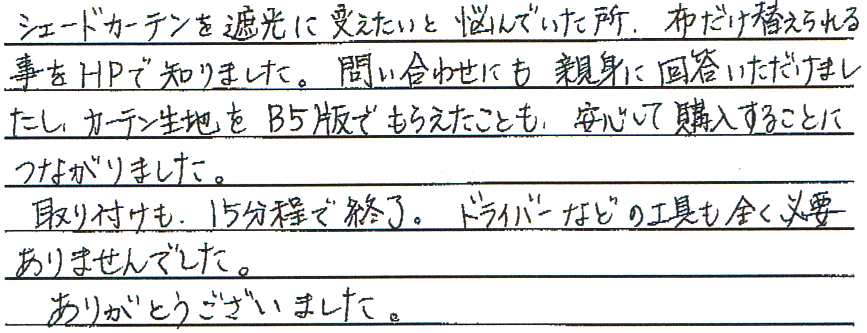 シェードカーテンを遮光に変えたいと悩んでいた所、布だけ替えられる
事をHPで知りました。問い合わせにも親身に回答いただけまし
たし、カーテン生地をB5版でもらえたことも、安心して購入することに
つながりました。
取り付けも、15分程で終了。ドライバーなどの工具も全く必要
ありませんでした。
ありがとうございました。